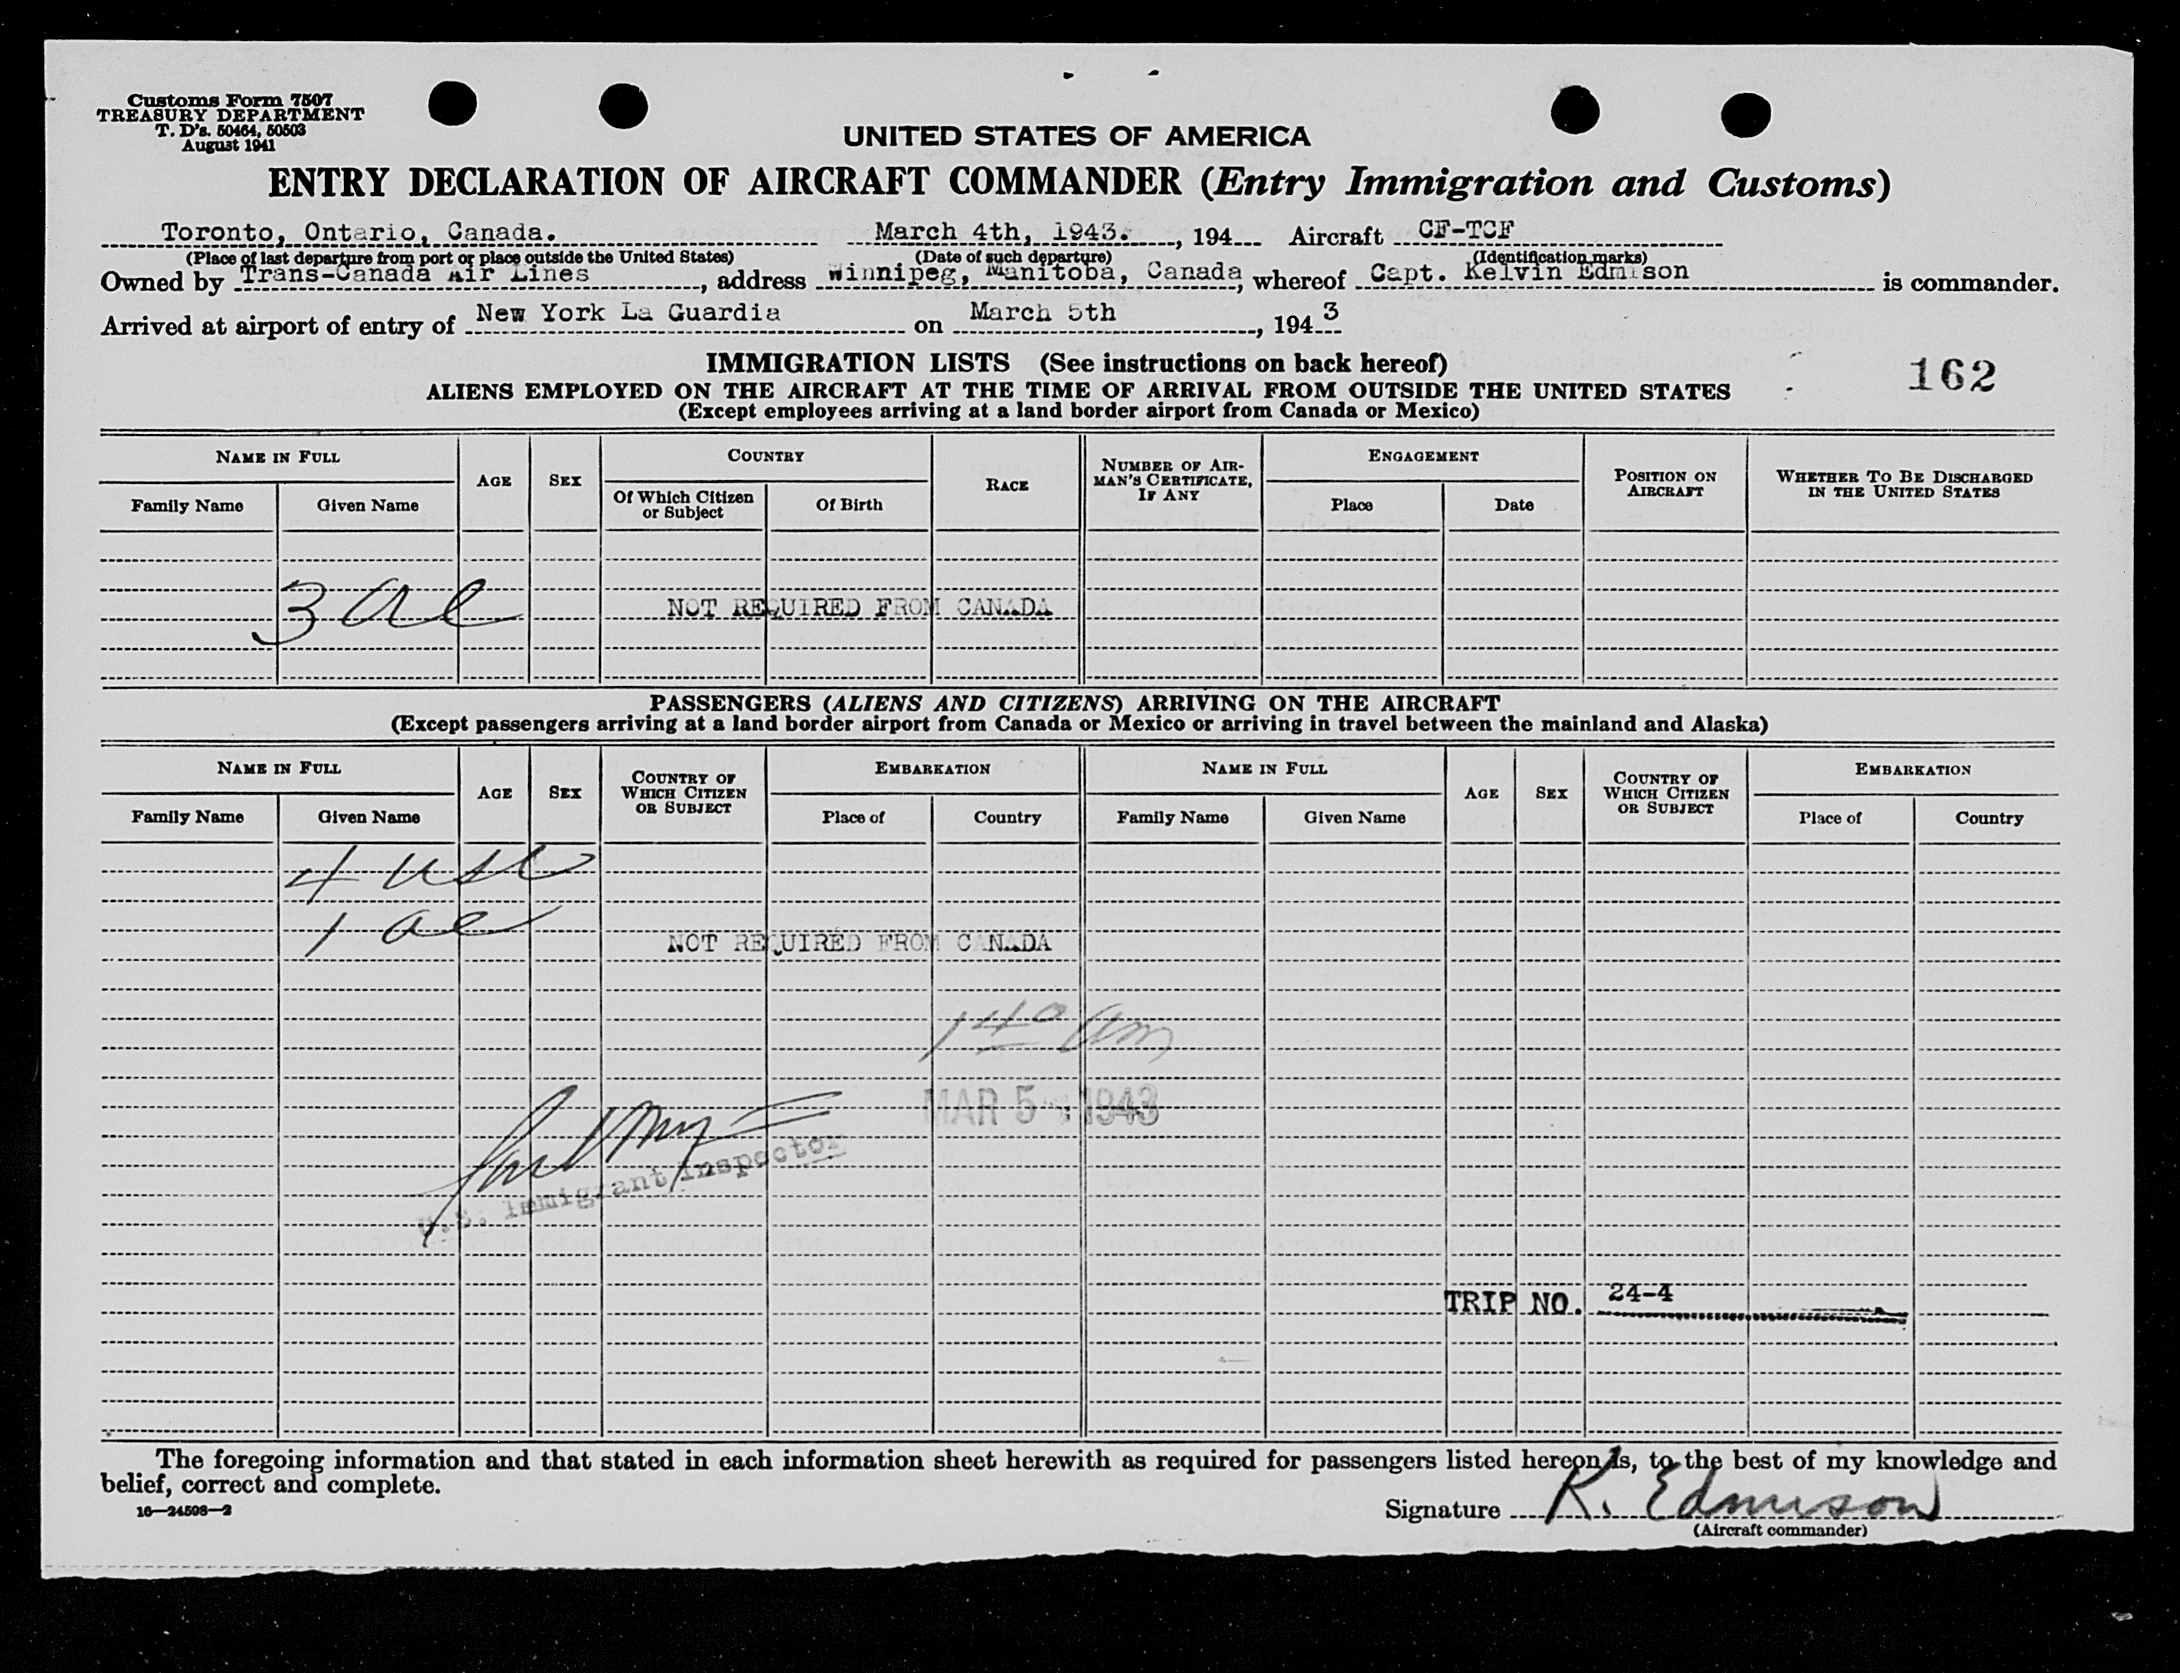 Customs Form 7507
TREASURY DEPARTMENT
T. D's. 50464, 50503
August 1941
UNITED STATES OF AMERICA
ENTRY DECLARATION OF AIRCRAFT COMMANDER (Entry Immigration and Customs)
Toronto, Ontario, Canada. March 4th, 1943., 194 Aircraft CF-TCF
(Place of last departure from port or place outside the United States) (Date of such departure) (Identification marks)
Owned by Trans-Canada Air Lines, address Winnipeg, Manitoba, Canada, whereof Capt. Kelvin Edmison is commander.
Arrived at airport of entry of New York La Guardia on March 5th, 1943
IMMIGRATION LISTS (See instructions on back hereof)
162
ALIENS EMPLOYED ON THE AIRCRAFT AT THE TIME OF ARRIVAL FROM OUTSIDE THE UNITED STATES
(Except employees arriving at a land border airport from Canada or Mexico)
NAME IN FULL AGE SEX COUNTRY RACE NUMBER OF AIRMAN'S CERTIFICATE, IF ANY ENGAGEMENT POSITION ON AIRCRAFT WHETHER TO BE DISCHARGED IN THE UNITED STATES
Family Name Given Name Of Which Citizen or Subject Of Birth Place Date
3 ae
NOT REQUIRED FROM CANADA
PASSENGERS (ALIENS AND CITIZENS) ARRIVING ON THE AIRCRAFT
(Except passengers arriving at a land border airport from Canada or Mexico or arriving in travel between the mainland and Alaska)
NAME IN FULL AGE SEX COUNTRY OF WHICH CITIZEN OR SUBJECT EMBARKATION NAME IN FULL AGE SEX COUNTRY OF WHICH CITIZEN OR SUBJECT EMBARKATION
Family Name Given Name Place of Country Family Name Given Name Place of Country
4 usc
1 ae
NOT REQUIRED FROM CANADA
1 40 am
MAR 5 1943
U.S. Immigrant Inspector
TRIP NO. 24-4
The foregoing information and that stated in each information sheet herewith as required for passengers listed hereon is, to the best of my knowledge and
belief, correct and complete.
16—24598—2
Signature K. Edmison
(Aircraft commander)